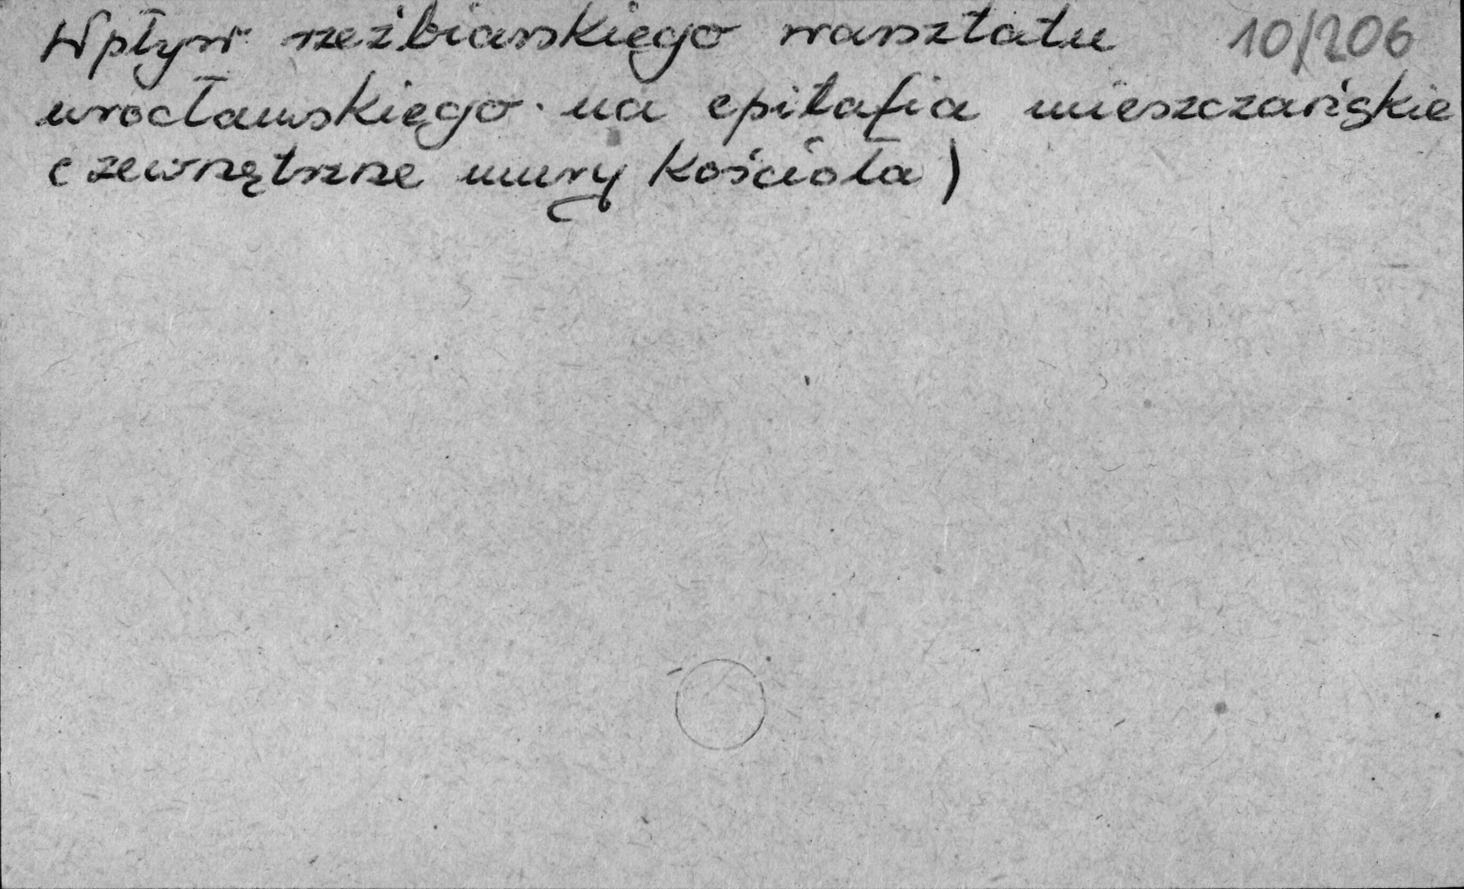 Wpływ rzeźbiarskiego warsztatu 10/206
wrocławskiego na epitafia mieszczańskie
(zewnętrzne mury kościoła)